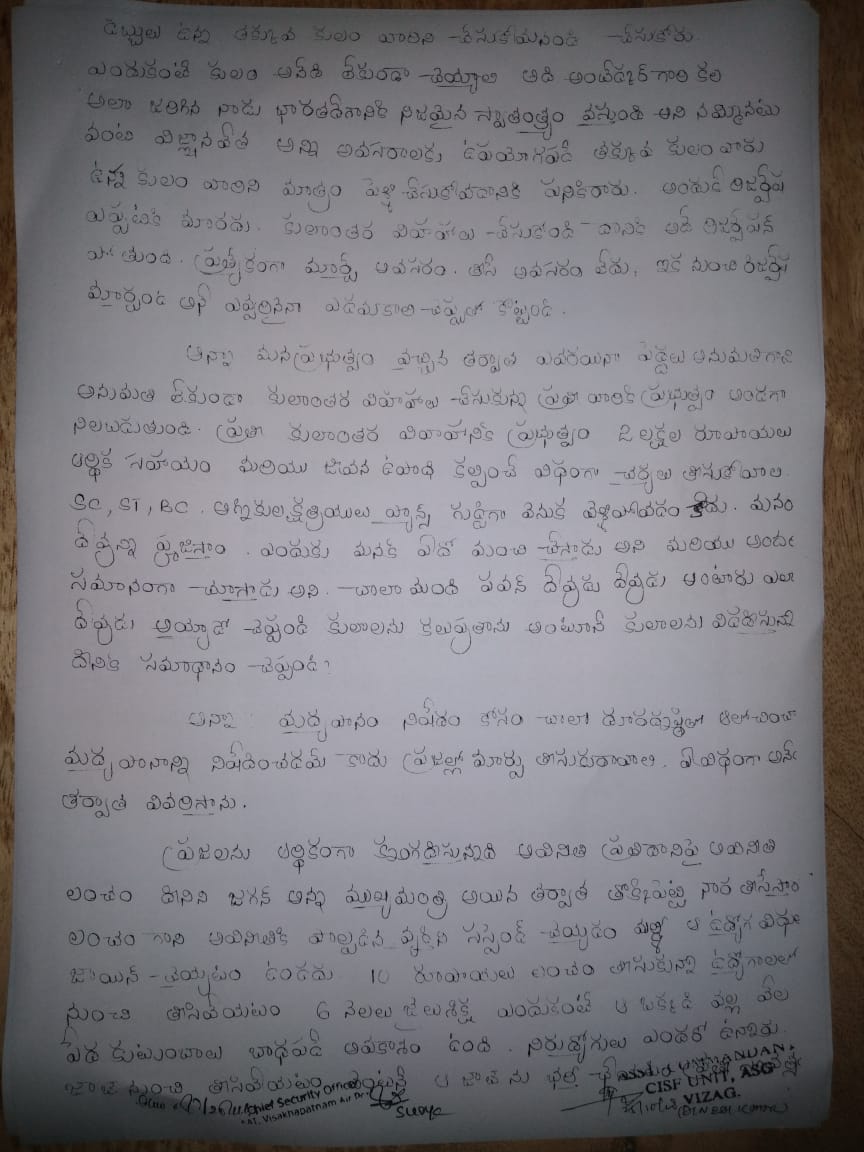 డబ్బులు ఉన్న తక్కువ కులం వారిని చేసుకోమనండి చేసుకోరు.
ఎందుకంటే కులం అనేది లేకుండా చెయ్యాలి అది అంబేద్కర్ గారి కల
అలా జరిగిన నాడు భారతదేశానికి నిజమైన స్వాతంత్ర్యం వస్తుంది అని నమ్మినటు
వంటి విజ్ఞానవేత్త అన్ని అవసరాలకు ఉపయోగపడే తక్కువ కులం వారు
ఉన్న కులం వారిని మాత్రం పెళ్ళి చేసుకోవడానికి పనికిరారు. అందుకే రిజర్వేష
ఎప్పటికి మారదు. కులాంతర వివాహాలు చేసుకోండి దానికి అదే రిజర్వేషన్
పోతుంది. ప్రత్యేకంగా మార్చే అవసరం. తీసే అవసరం లేదు, ఇక నుంచి రిజర్వేష
మార్చండి అనే ఎవ్వరినైనా ఎడమకాలి చెప్పుతో కొట్టండి.
అన్నా మన ప్రభుత్వం వచ్చిన తర్వాత ఎవరయినా పెద్దలు అనుమతిగాని
అనుమతి లేకుండా కులాంతర వివాహాలు చేసుకున్న ప్రతి వారికి ప్రభుత్వం అండగా
నిలబడుతుంది. ప్రతి కులాంతర వివాహానికి ప్రభుత్వం 2 లక్షల రూపాయలు
ఆర్థిక సహాయం మరియు జీవన ఉపాధి కల్పించే విధంగా చర్యలు తీసుకోవాల
SC, ST, BC. అగ్నికులక్షత్రియులు ఫ్యాన్స్ గుడ్డిగా వెనుక వెళ్ళిపోవడం కాదు. మనం
దేవున్ని పూజిస్తాం. ఎందుకు మనకి ఏదో మంచి చేస్తాడు అని మరియు అందరి
సమానంగా చూస్తాడు అని. చాలా మంది పవన్ దేవుడు దేవుడు అంటారు ఎలా
దేవుడు అయ్యాడో చెప్పండి కులాలను కలుపుతాను అంటూనే కులాలను విడదీస్తున్నా
దీనికి సమాధానం చెప్పండి?
అన్నా మద్యపానం నిషేదం కోసం చాలా దూరదృష్టితో ఆలోచించా
మద్యపానాన్ని నిషేదించడమే కాదు ప్రజల్లో మార్పు తీసుకురావాలి. ఏ విధంగా అనే
తర్వాత వివరిస్తాను.
ప్రజలను ఆర్థికంగా కుంగదీస్తున్నది అవినీతి ప్రతిదానిపై అవినీతి
లంచం దీనిని జగన్ అన్న ముఖ్యమంత్రి అయిన తర్వాత తొక్కిపెట్టి నార తీసేస్తాం
లంచం గాని అవినీతికి పాల్పడిన వ్యక్తిని సస్పెండ్ చెయ్యడం మళ్ళీ ఆ ఉద్యోగ విధుల
జాయిన్ చెయ్యటం ఉండదు. 10 రూపాయలు లంచం తీసుకున్నా ఉద్యోగాలలో
నుంచి తీసివేయటం 6 నెలలు జైలుశిక్ష ఎందుకంటే ఆ ఒక్కడి వల్ల వేల
పేద కుటుంబాలు బాధపడే అవకాశం ఉంది. నిరుద్యోగులు ఎందరో ఉన్నారు.
జాబ్ నుంచి తీసివేయటం వెంటనే ఆ జాబ్ ను భర్తీ
Chief Security Officer
AAI, Visakhapatnam Air Port
Surya
CISF UNIT, ASG
VIZAG.